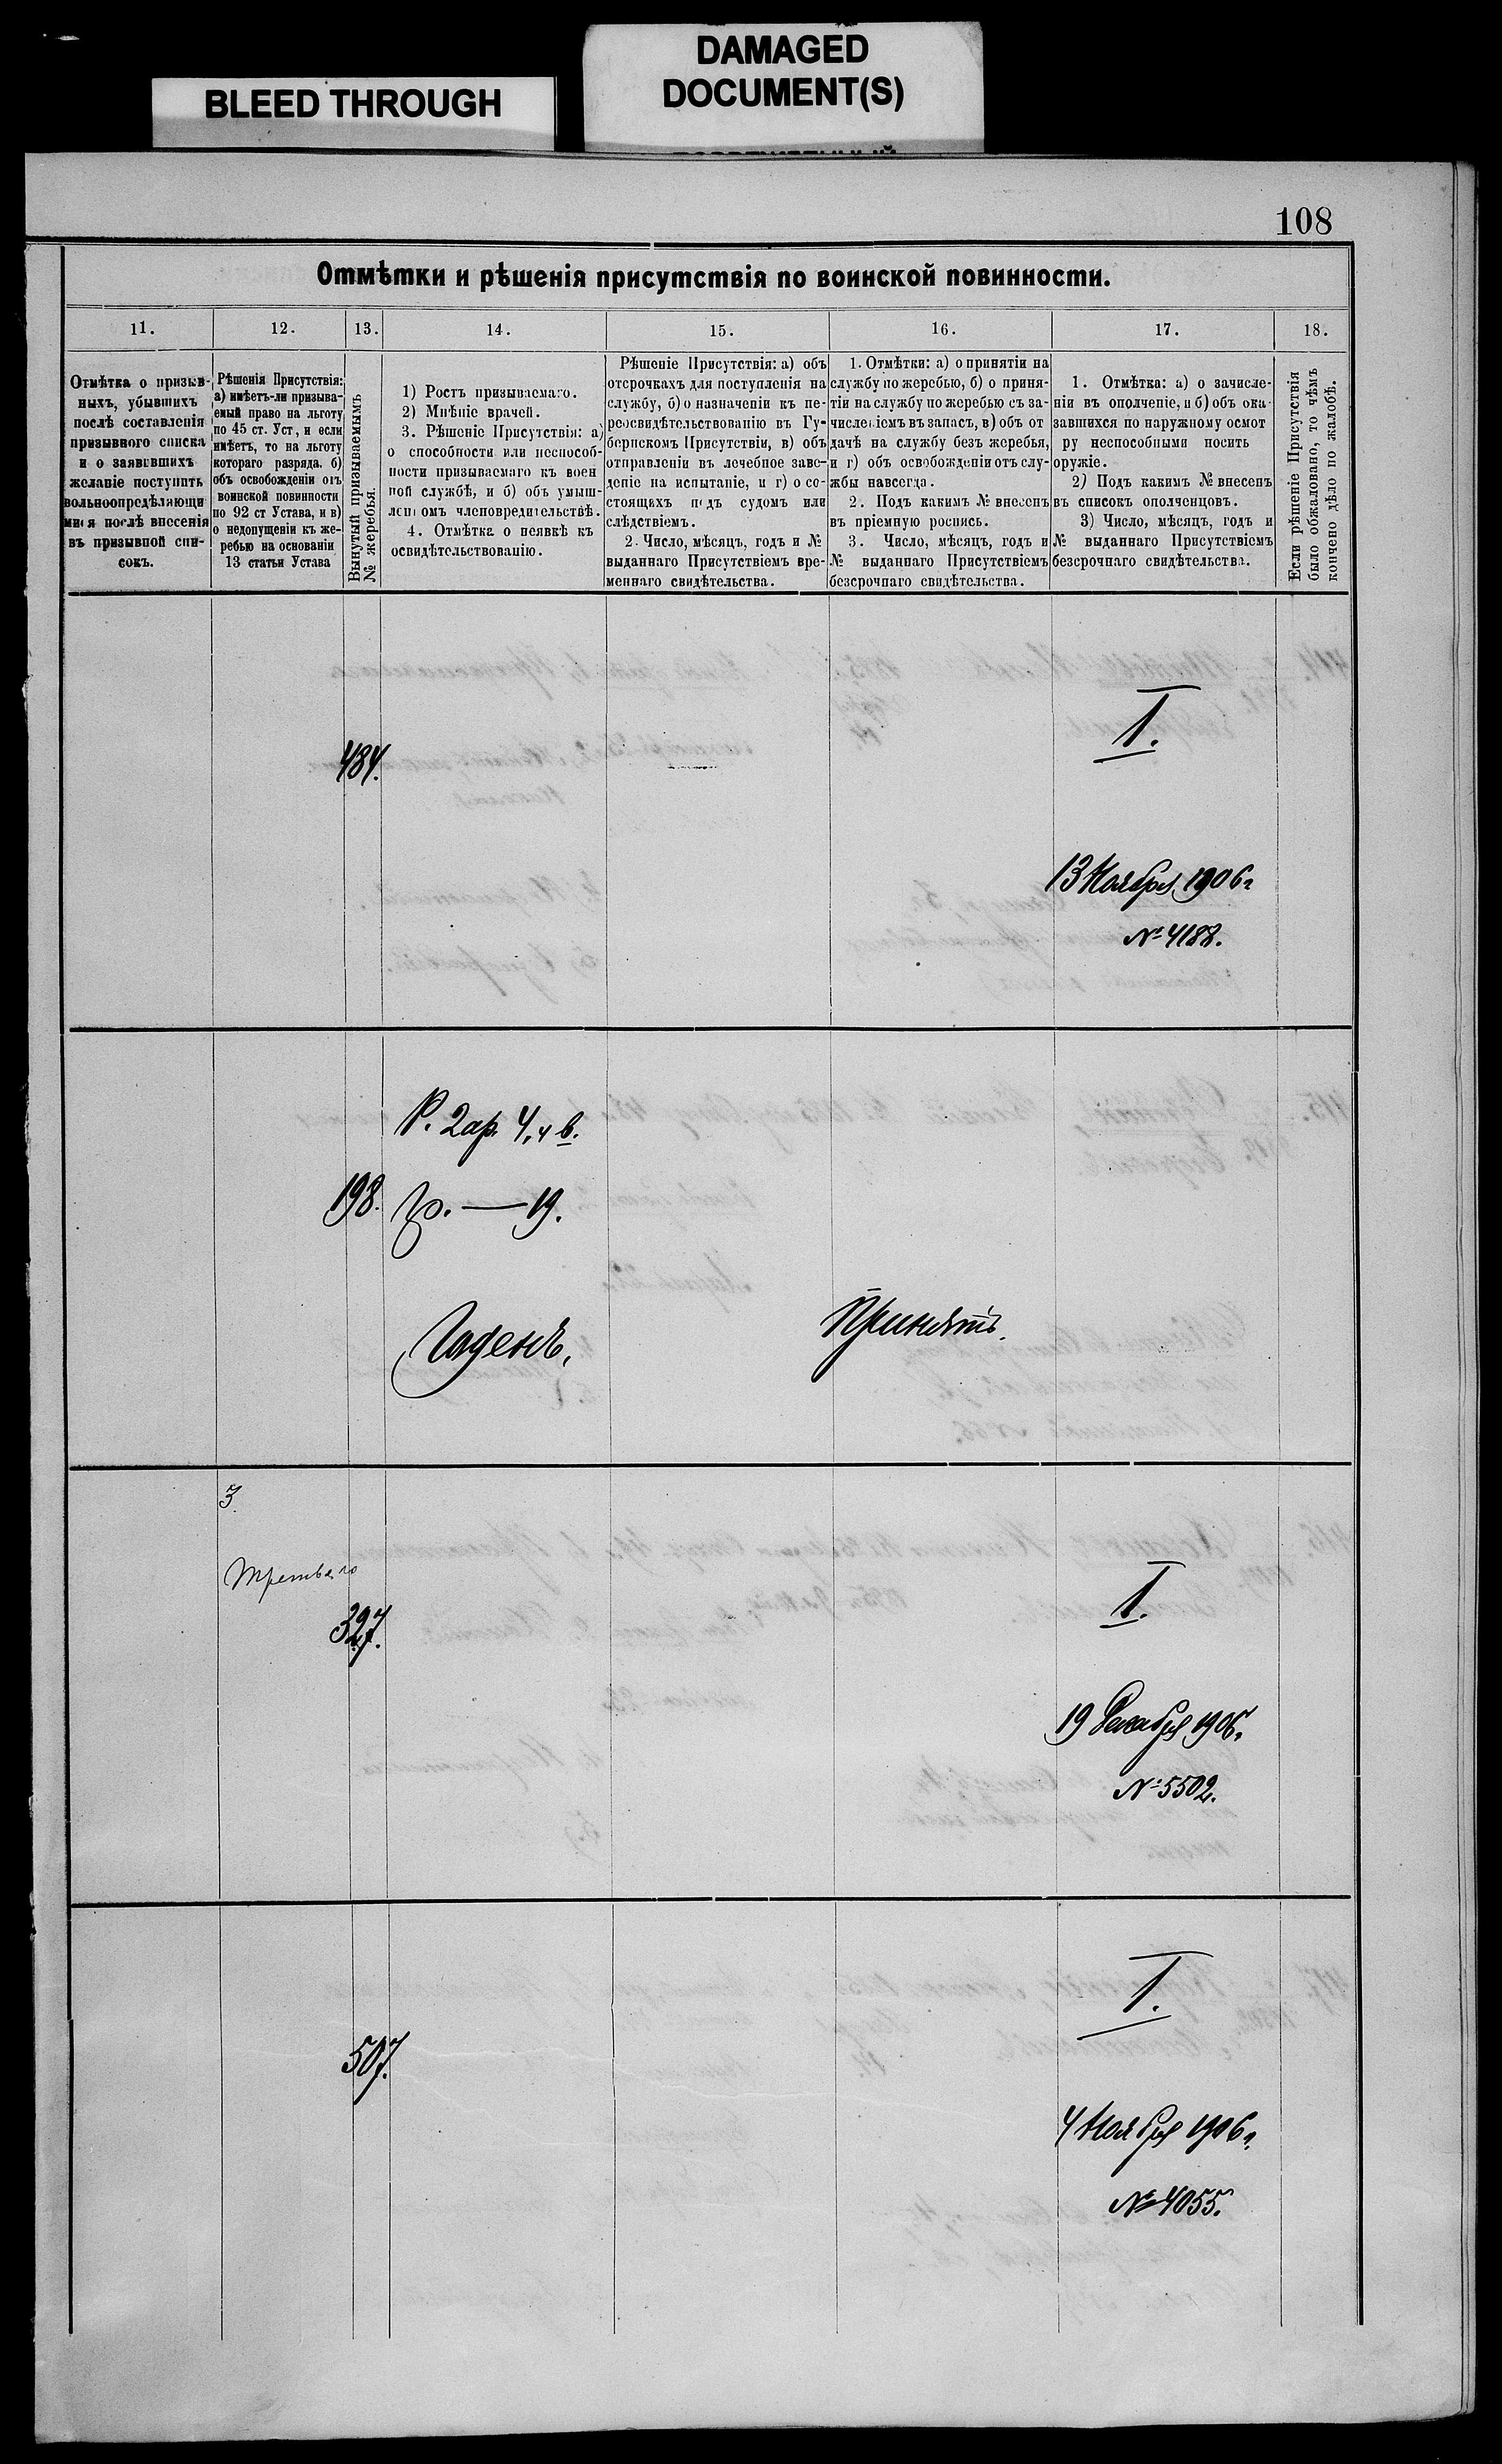 BLEED THROUGH
DAMAGED
DOCUMENT(S)
108
Отмѣтки и рѣшенія присутствія по воинской повинности.
11.
12.
13.
14.
15.
16.
17.
18.
Отмѣтка о призыв-
ныхъ, убывшихъ
послѣ составленія
призывного списка
и о заявившихъ
желаніе поступить
вольноопредѣляющи
мися послѣ внесенія
въ призывной спи-
сокъ.
Рѣшенія Присутствія:
а) имѣетъ-ли призыва-
емый право на льготу
по 45 ст. Уст, и если
имѣетъ, то на льготу
котораго разряда. б)
объ освобожденіи отъ
воинской повинности
по 92 ст Устава, и в)
о недопущеніи къ же-
ребью на основаніи
13 статьи Устава
Вынутый призываемымъ
№ жеребья.
1) Ростъ призываемаго.
2) Мнѣніе врачей.
3. Рѣшеніе Присутствія: а)
о способности или неспособ-
ности призываемаго къ воен
ной службѣ, и б) объ умыш-
леномъ членовредительствѣ.
4. Отмѣтка о неявкѣ къ
освидѣтельствованію.
Рѣшеніе Присутствія: а) объ
отсрочкахъ для поступленія на
службу, б) о назначеніи къ пе-
реосвидѣтельствованію въ Гу-
бернскомъ Присутствіи, в) объ
отправленіи въ лечебное заве-
деніе на испытаніе, и г) о со-
стоящихъ подъ судомъ или
слѣдствіемъ.
2. Число, мѣсяцъ, годъ и №
выданнаго Присутствіемъ вре-
меннаго свидѣтельства.
1. Отмѣтки: а) о принятіи на
службу по жеребью, б) о приня-
тіи на службу по жеребью съ за-
численіемъ въ запасъ, в) объ от
дачѣ на службу безъ жеребья,
и г) объ освобожденіи отъ слу-
жбы навсегда.
2. Подъ какимъ № внесенъ
въ пріемную роспись.
3. Число, мѣсяцъ, годъ и
№ выданнаго Присутствіемъ
безсрочнаго свидѣтельства.
1. Отмѣтка: а) о зачисле-
ніи въ ополченіе, и б) объ ока-
завшихся по наружному осмот
ру неспособными носить
оружіе.
2) Подъ какимъ № внесенъ
въ списокъ ополченцовъ.
3) Число, мѣсяцъ, годъ и
№ выданнаго Присутствіемъ
безсрочнаго свидѣтельства.
Если рѣшеніе Присутствія
было обжаловано, то чѣмъ
кончено дѣло по жалобѣ.
484.
I.
13 Ноября 1906 г
№ 4188.
Р. 2 ар. 4, ч в.
198.
гр. — 19.
Годенъ.
Принять.
3
Третьяго
397.
I.
19 Декабря 1906 г.
№ 5502.
507.
I.
4 Ноября 1906 г.
№ 4055.